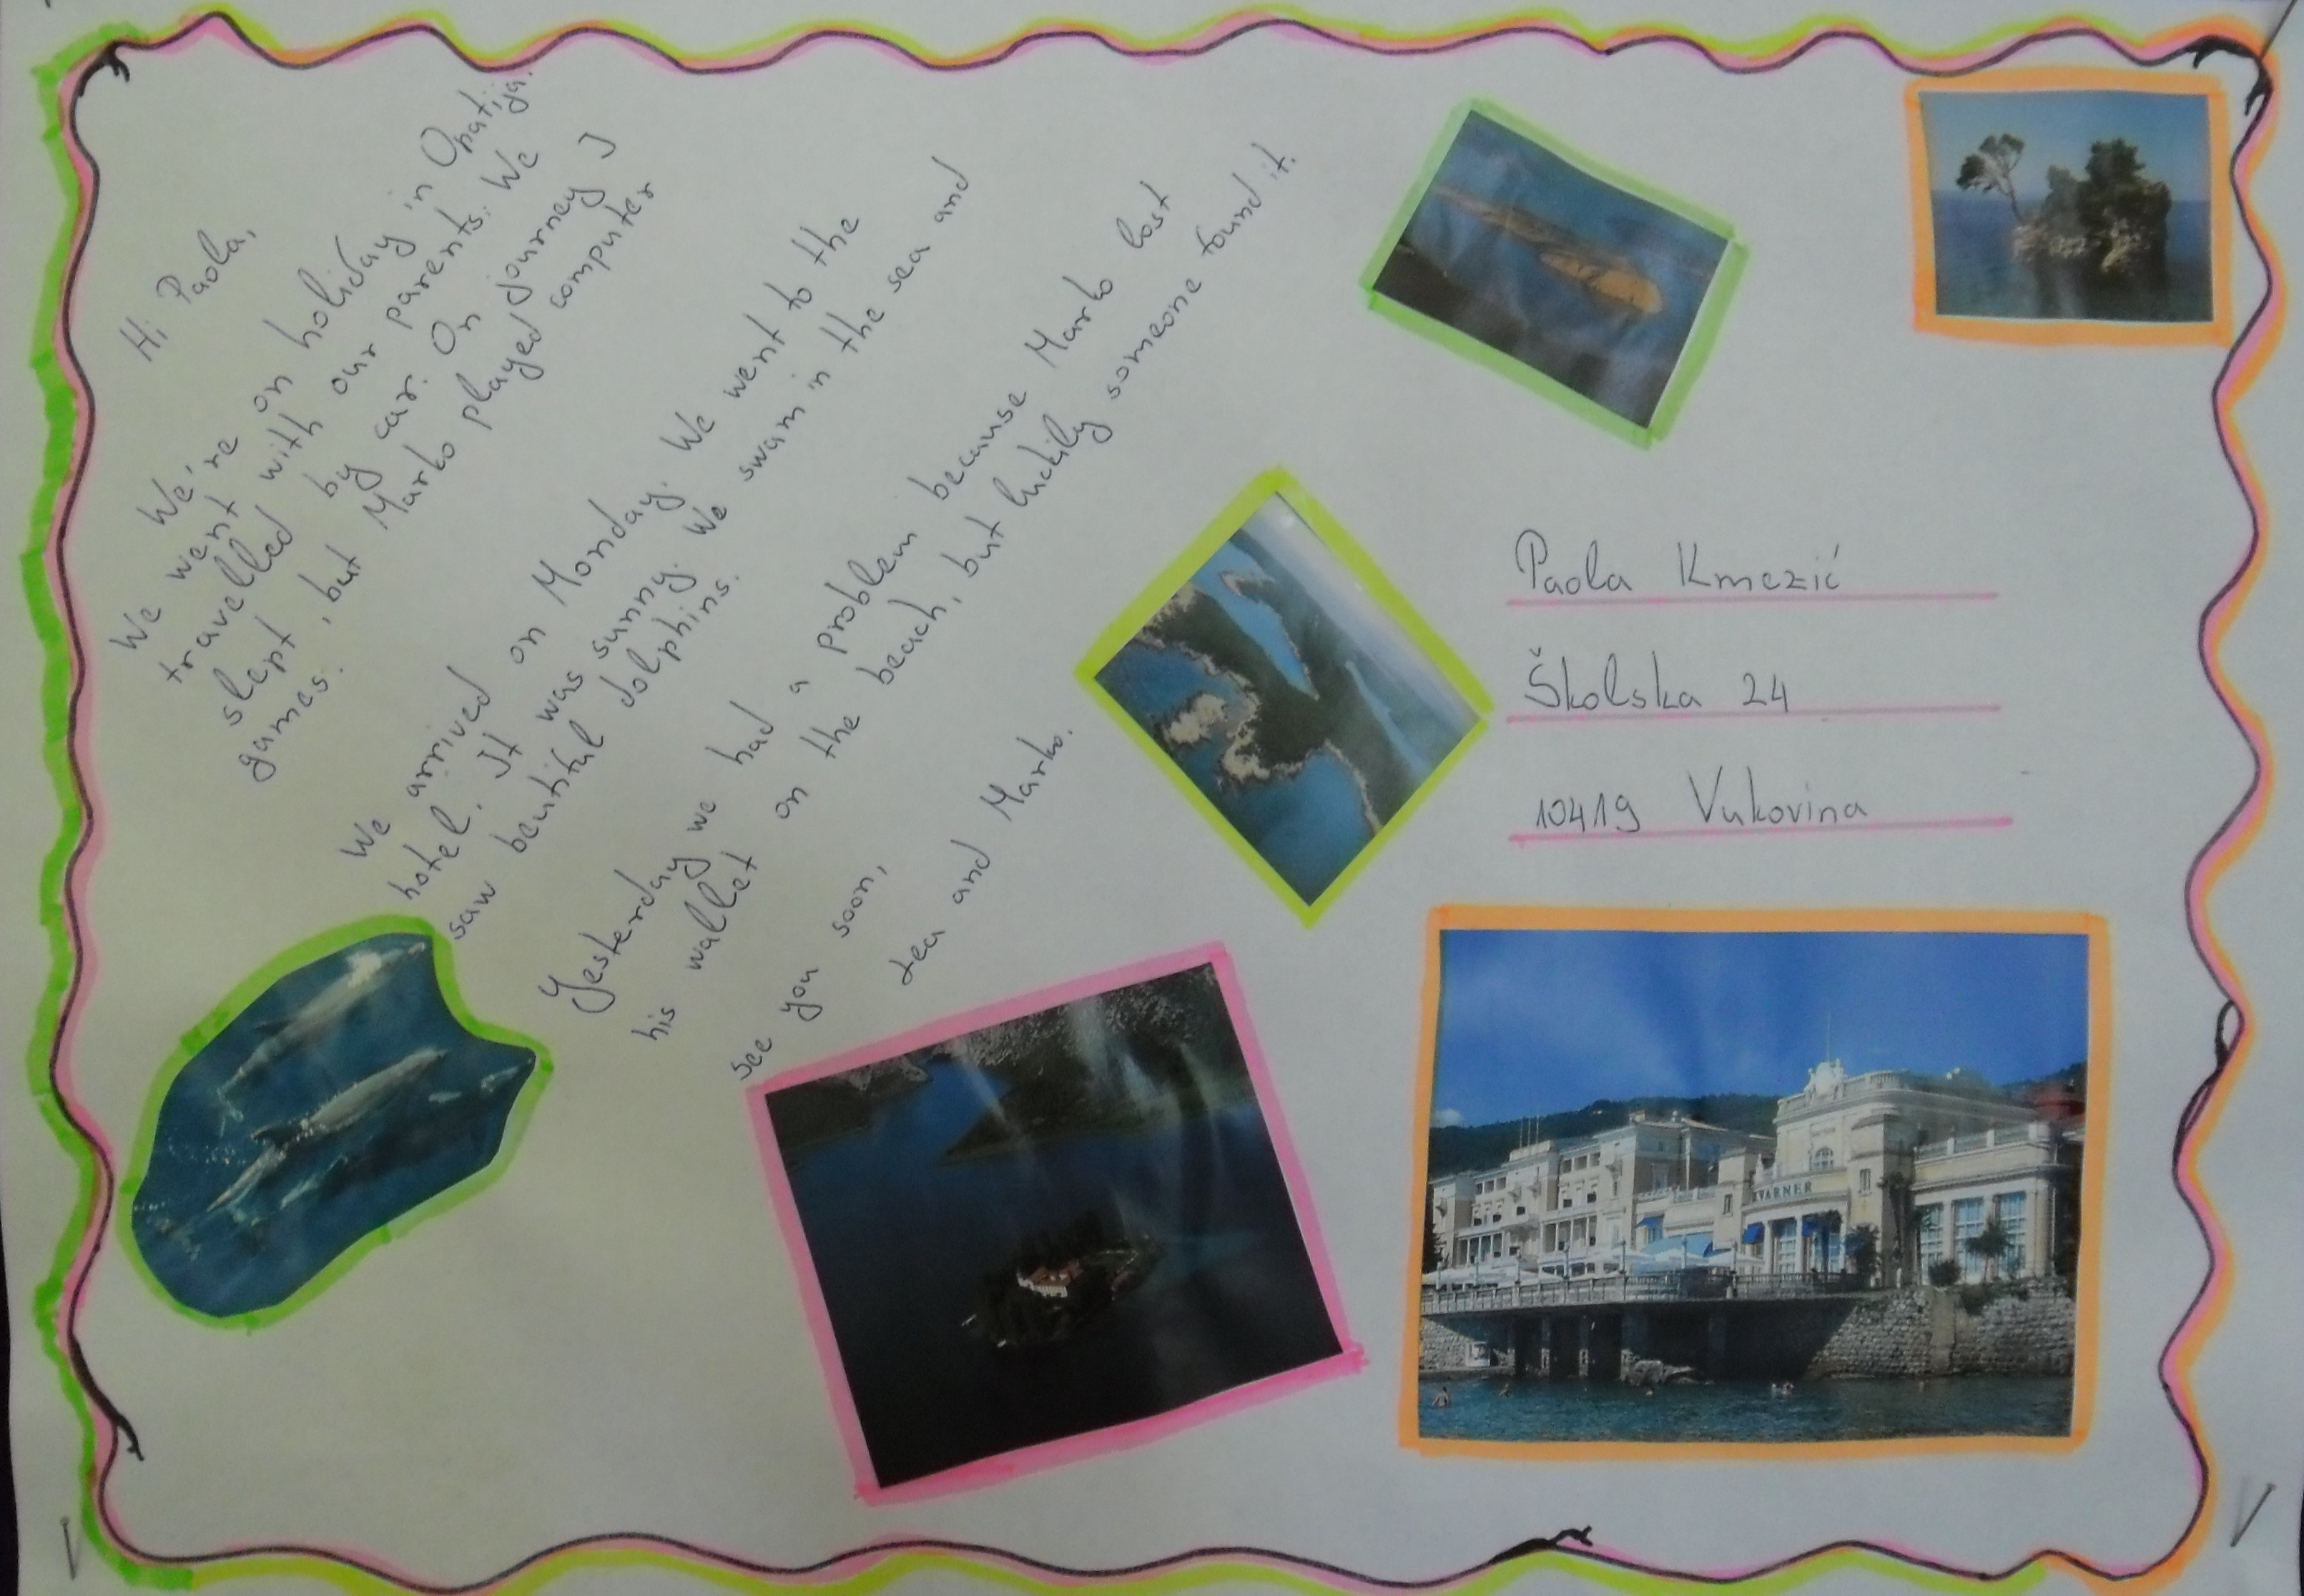 Hi Paola,
We're on holiday in Opatija.
We went with our parents. We
travelled by car. On journey I
slept, but Marko played computer
games.
We arrived on Monday. We went to the
hotel. It was sunny. We swam in the sea and
saw beutiful dolphins.
Yesterday we had a problem because Marko lost
his wallet on the beach, but luckily someone found it.
see you soon,
Lea and Marko.
Paola Kmezić
Školska 24
10419 Vukovina
KVARNER